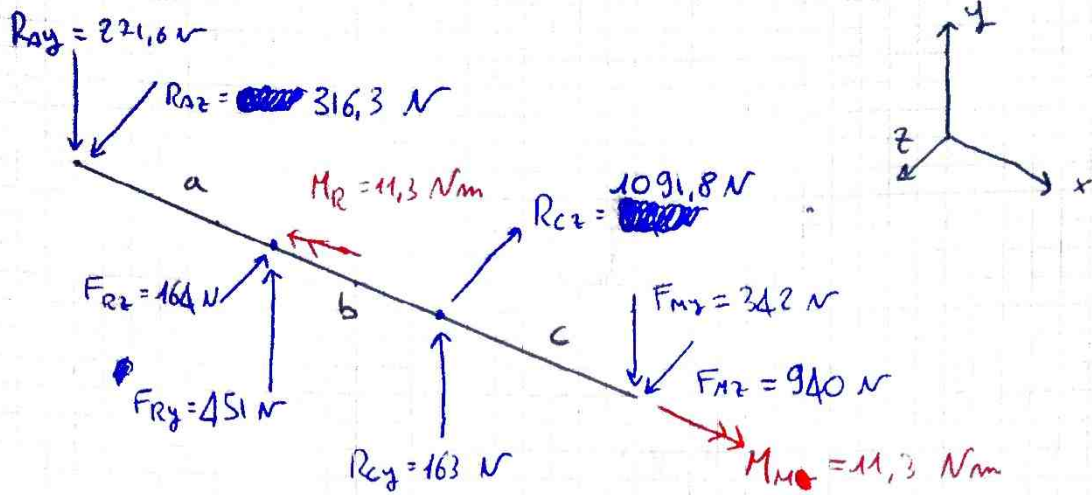 RAy = 271,6 N
RAz = 316,3 N
y
z
x
a
MR = 11,3 Nm
1091,8 N
RCz =
FRz = 164 N
b
FMy = 342 N
c
FMz = 940 N
FRy = 451 N
RCy = 163 N
MM = 11,3 Nm